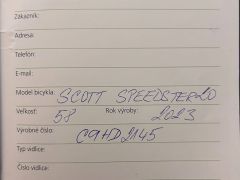 Zákazník:
Adresa:
Telefón:
E-mail:
Model bicykla: SCOTT SPEEDSTER 20
Veľkosť: 58 Rok výroby: 2023
Výrobné číslo: C9HD2145
Typ vidlice:
Číslo vidlice: